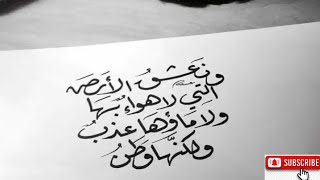 ونعشق الأرض
التي لا هواء بها
ولا ماؤها عذب
ولكنها وطن
SUBSCRIBE